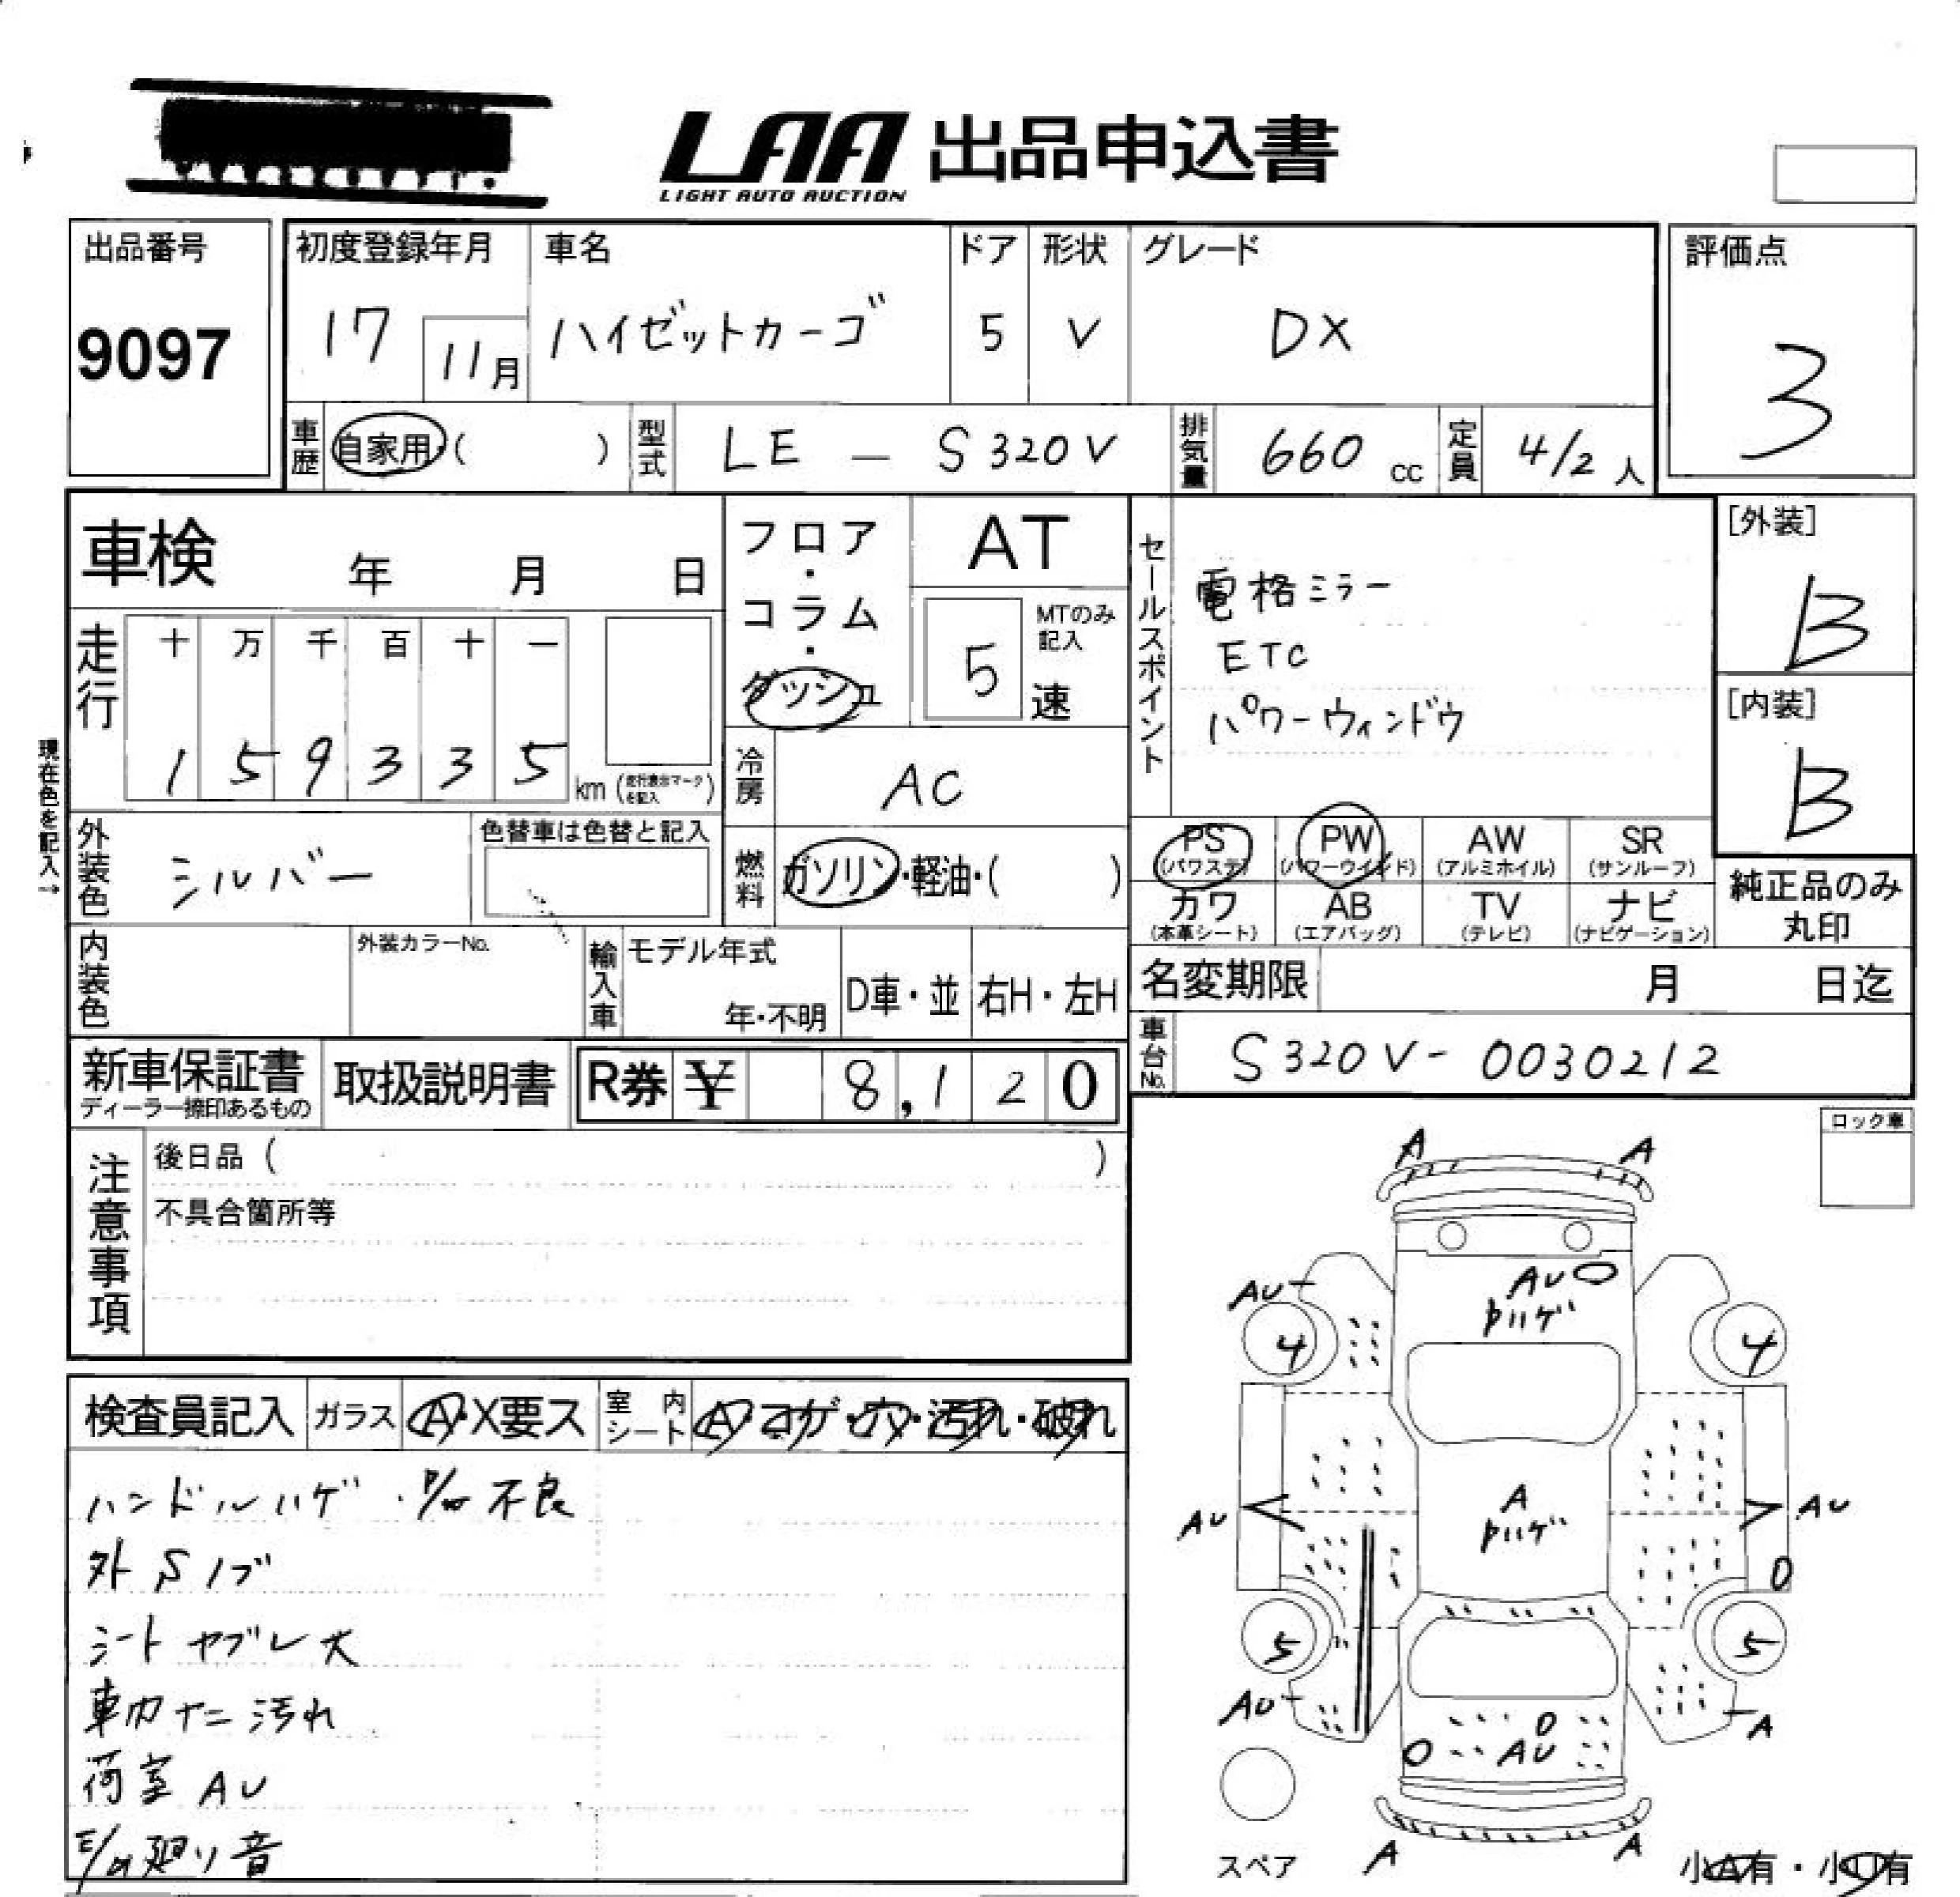 LAA 出品申込書
LIGHT AUTO AUCTION
出品番号
9097
初度登録年月
17 11月
車名
ハイゼットカーゴ
ドア
5
形状
V
グレード
DX
評価点
3
車歴 自家用・( )
型式 LE — S320V
排気量 660 cc
定員 4/2 人
車検 年 月 日
フロア・コラム・ダッシュ
AT
5 速
MTのみ記入
走行
十 万 千 百 十 一
1 5 9 3 3 5 km
(走行表示マークを記入)
現在色を記入→
冷房 AC
セールスポイント
電格ミラー
ETC
パワーウィンドウ
[外装]
B
[内装]
B
外装色 シルバー
色替車は色替と記入
燃料 ガソリン・軽油・( )
PS (パワステ)
PW (パワーウインド)
AW (アルミホイル)
SR (サンルーフ)
カワ (本革シート)
AB (エアバッグ)
TV (テレビ)
ナビ (ナビゲーション)
純正品のみ
丸印
内装色
外装カラーNo.
輸入車 モデル年式
年・不明
D車・並
右H・左H
名変期限 月 日迄
車台No. S320V- 0030212
新車保証書
ディーラー捺印あるもの
取扱説明書
R券 ¥ 8,120
注意事項
後日品 ( )
不具合箇所等
ロック車
検査員記入
ガラス A・X要ス
室内シート A・コゲ・穴・汚れ・破れ
ハンドルハゲ・ 不良
外Sノブ
シートヤブレ大
車内ナニ汚れ
荷室AU
廻り音
A A
AU
AU
ハゲ
4 4
A
ハゲ
AU AU
5 5
AU
A
AU
A A
スペア
小A有・小U有